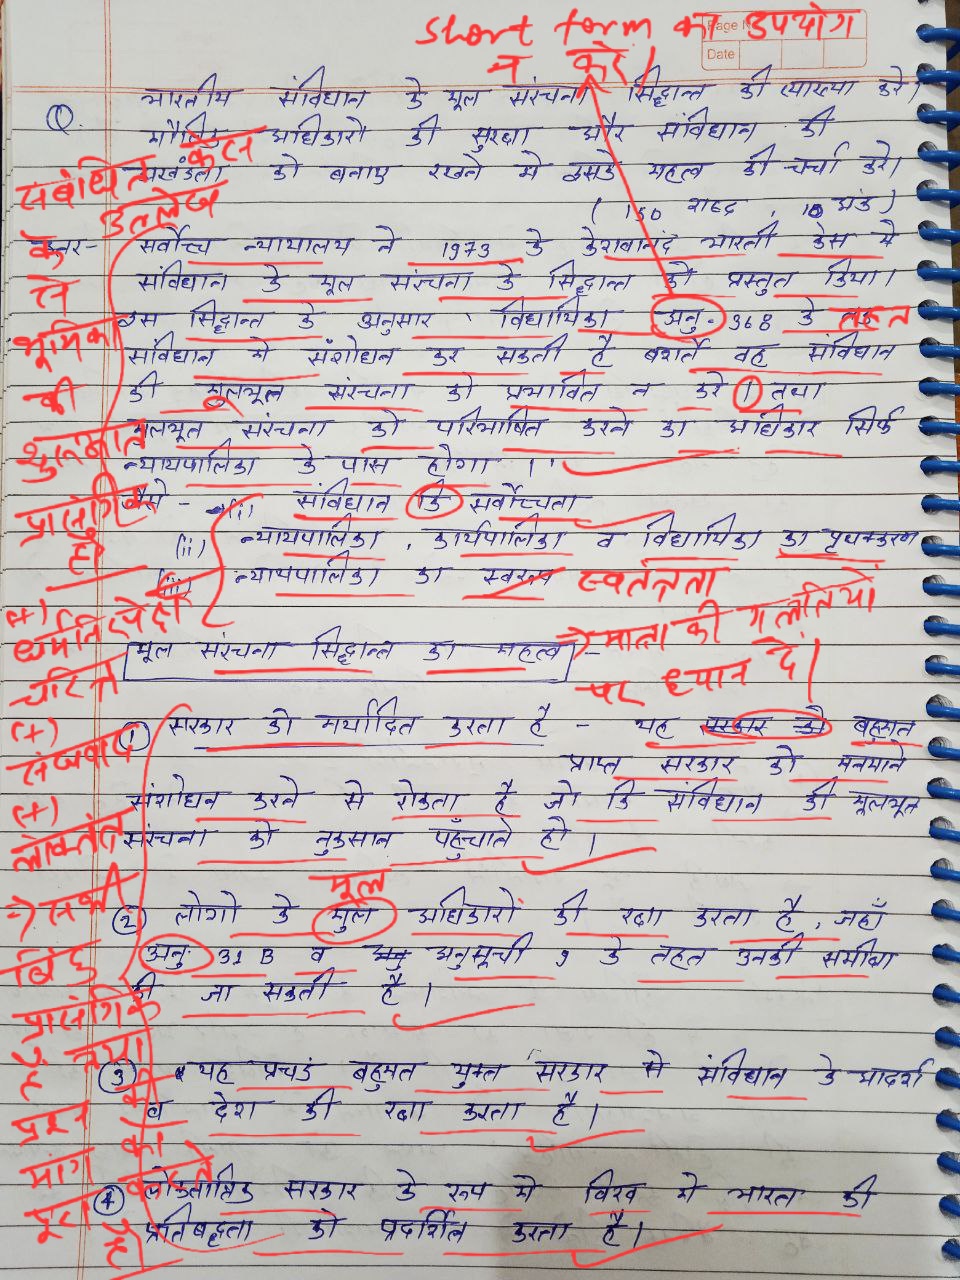 Short form का उपयोग
न करें।
Page No
Date
Q. भारतीय संविधान के मूल संरचना सिद्धान्त की व्याख्या करे।
मौलिक अधिकारों की सुरक्षा और संविधान की
अखंडता को बनाए रखने में इसके महत्व की चर्चा करे।
( 150 शब्द , 10 अंक )
उत्तर- सर्वोच्च न्यायालय ने 1973 के केशवानंद भारती केस मे
संविधान के मूल संरचना के सिद्धान्त को प्रस्तुत किया।
इस सिद्धान्त के अनुसार , विधायिका अनु. 368 के तहत
संविधान मे संशोधन कर सकती है बशर्ते वह संविधान
की मूलभूल संरचना को प्रभावित न करे । तथा
मूलभूत संरचना को परिभाषित करने का अधिकार सिर्फ
न्यायपालिका के पास होगा ।
जैसे - (i) संविधान कि सर्वोच्चता
(ii) न्यायपालिका , कार्यपालिका व विधायिका का पृथक्करण
(iii) न्यायपालिका का स्वरूप स्वतंत्रता
संबंधित केस
उल्लेख
के
से
भूमिका
की
शुरूआत
प्रासंगिक
है।
(+)
धर्मनिरपेक्ष
चरित्र
(+)
संघवाद
(+)
लोकतंत्र
मूल संरचना सिद्धान्त का महत्व -
→ मात्रा की गलतियों
पर ध्यान दें।
(1) सरकार को मर्यादित करता है - यह सरकार को बहुमत
प्राप्त सरकार को मनमाने
संशोधन करने से रोकता है जो कि संविधान की मूलभूत
संरचना को नुकसान पहुँचाते हो ।
मूल
(2) लोगो के मुल अधिकारों की रक्षा करता है , जहाँ
अनु. 31 B व अनु अनुसूची 9 के तहत उनकी समीक्षा
की जा सकती है ।
(3) यह प्रचडं बहुमत युक्त सरकार से संविधान के आदर्श
व देश की रक्षा करता है ।
(4) लोकतांत्रिक सरकार के रूप मे विश्व मे भारत की
प्रतिबद्धता को प्रदर्शित करता है ।
→ सभी
बिंदु
प्रासंगिक
हैं तथा
प्रश्न की
मांग को
पूरा करते
हैं।